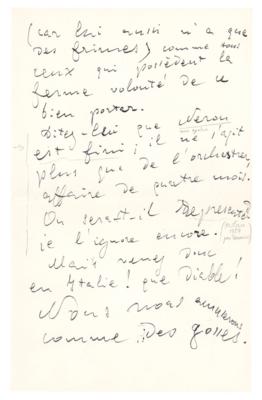 (car lui aussi n'a que
des frimes) comme tous
ceux qui possèdent la
ferme volonté de se
bien porter.
Dites-lui que Néron
est fini; il ne s'agit
plus que de l'orchestrer,
affaire de quatre mois.
Où serait-il représenté?
je l'ignore encore.
Mais venez donc
en Italie! que Diable!
Nous nous amuserons
comme des gosses.